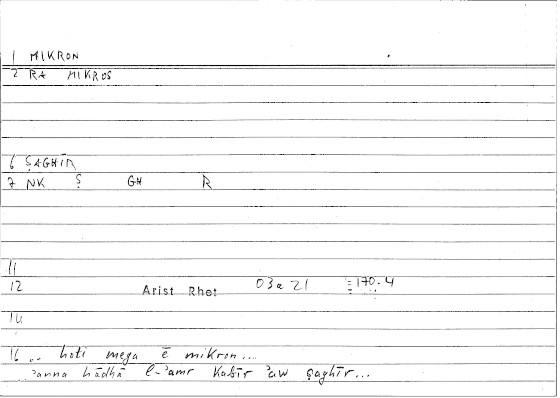 1 MIKRON
2 RA MIKROS
6 ṢAGHĪR
7 NK Ṣ GH R
11
12 Arist Rhet 03a21 = 170.4
14
16 .. hoti mega ē mikron...
ʾanna hādhā l-ʾamr kabīr ʾaw ṣaghīr...